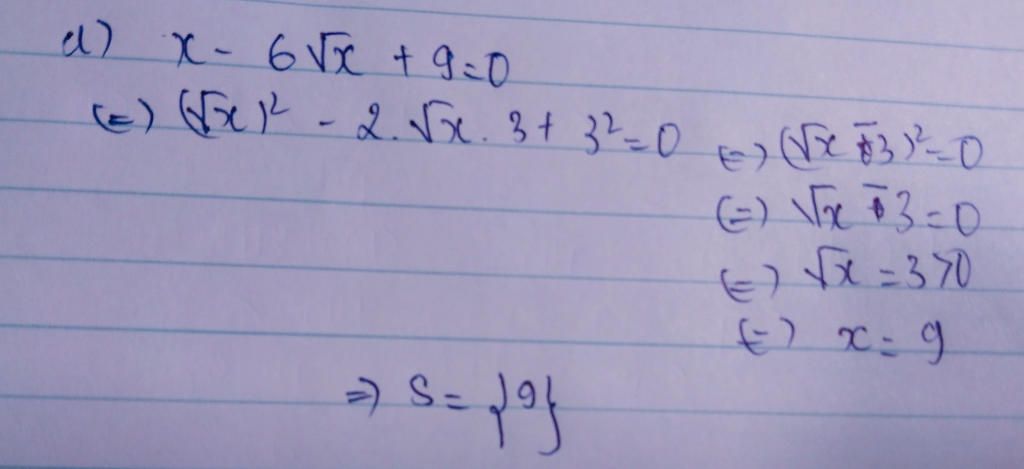 d) x - 6√x + 9 = 0
⇔ (√x)² - 2.√x.3 + 3² = 0 ⇔ (√x - 3)² = 0
⇔ √x - 3 = 0
⇔ √x = 3 > 0
⇔ x = 9
⇒ S = {9}